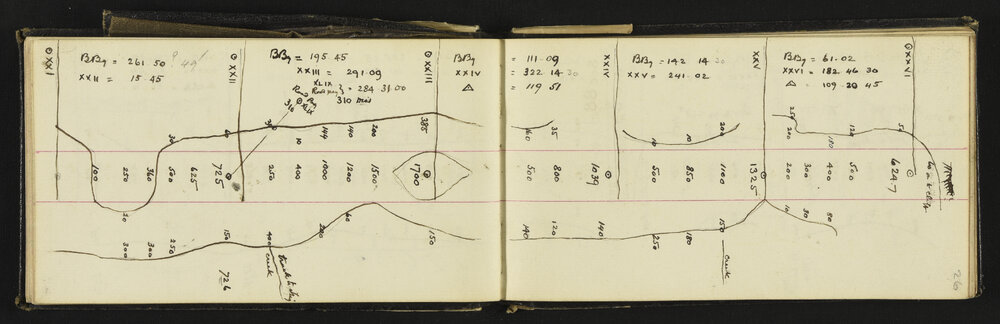 ⊙XXI
BBy = 261 50
XXII = 15 45
⊙XXII
BBy = 195 45
XXIII = 291·09
XLIX
= 284 31 00
310 ⊙ XLIX 310 mis
⊙XXIII
BBy = 111·09
XXIV = 322 14 30
△ = 119 51
XXIV
BBy = 142 14 30
XXV = 241·02
XXV
BBy = 61·02
XXVI = 182 46 30
△ = 109 20 45
⊙XXVI
30
60
10
144
140
200
385
160
35
10
200
250
200
180
120
50
100
250
360
500
625
725
250
400
1000
1200
1500
1700
500
800
1039
500
850
1100
1325
200
300
400
500
624·7
20
300
300
250
150
400
200
60
150
140
120
140
250
180
150
10
30
80
726
creek
creek
26